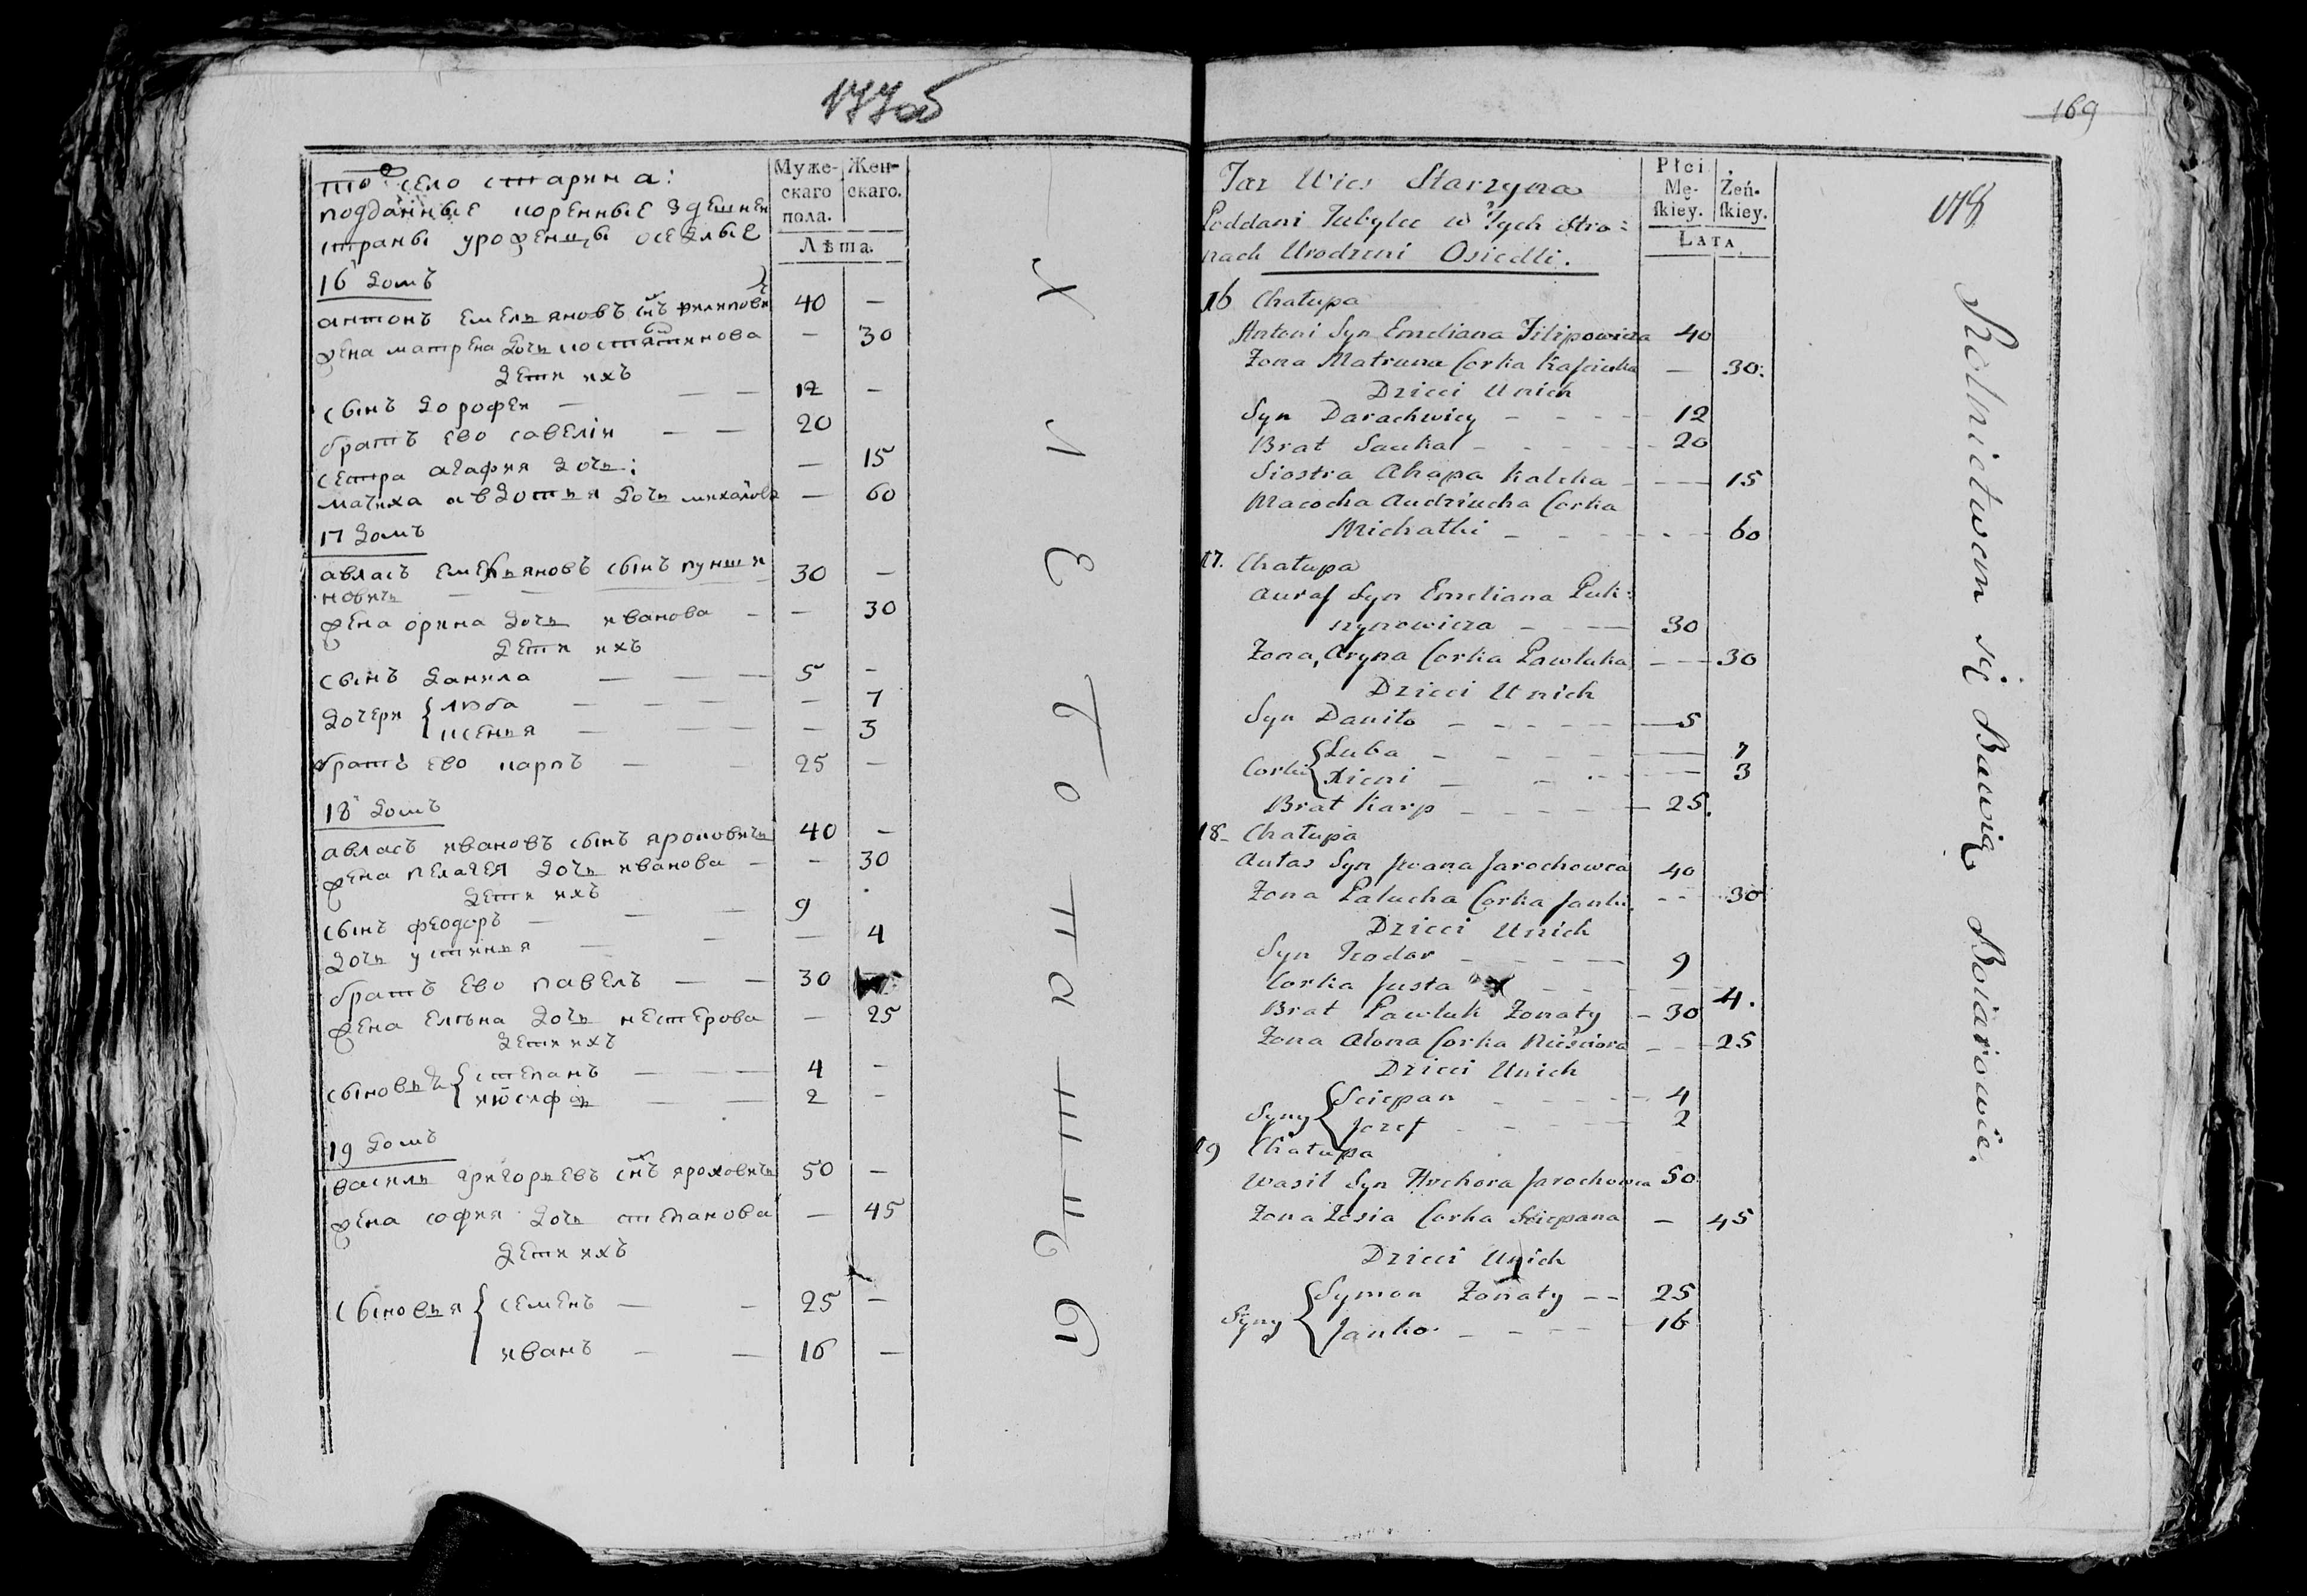 177об
то село старина:
подданные коренные здешнеи
страны урофенцы оседлые
Муже-
скаго
пола.
Жен-
скаго.
Лѣта.
16 домъ
антонъ емельяновъ снъ филипови 40 —
жена матрена дочь костантинова — 30
дети ихъ
сынъ дорофеи — — — 12 —
братъ ево савелiи — — 20
сестра агафия дочь: — 15
мачиха авдотья дочь михаилова — 60
17 домъ
авласъ емельяновъ сынъ пукши
новичь — — 30 —
жена орина дочь иванова — — 30
дети ихъ
сынъ данила — — — 5 —
дочери { люба — — — — — 7
ксенья — — — — 3
братъ ево карпъ — — 25 —
18 домъ
авласъ ивановъ сынъ яроковичь 40 —
жена пелагея дочь иванова — — 30
дети ихъ
сынъ феодоръ — — — 9
дочь устинья — — — 4
братъ ево павелъ — — 30
жена елѣна дочь нестерова — 25
дети ихъ
сыновья { степанъ — — — 4 —
июсифъ — — 2 —
19 домъ
василь григорьевъ снъ яроховичь 50 —
жена софия дочь степанова — 45
дети ихъ
сыновья { семенъ — — 25 —
иванъ — — 16 —
хлѣбопашцы
169
178
Taz Wies Starzyna
Poddani Tubylce w Tych Stro:
nach Urodzeni Osiedli.
Płci
Mę-
skiey.
Żeń-
skiey.
Lata
16 Chałupa
Antoni Syn Emeliana Filipowicza 40
Zona Matruna Corka Kaściuka — 30:
Dzieci Unich
Syn Darachwiey - - - - 12
Brat Sauka - - - - - 20
Siostra Ahapa Kaleka - - - - 15
Macocha Audziucha Corka
Michałki - - - - - - 60
17. Chałupa
Auras Syn Emeliana Puk:
szynowicza - - - - 30
Zona, Aryna Corka Pawluka - - - 30
Dzieci Unich
Syn Daniło - - - - - - 5
Corki { Luba - - - - - - 7
Xieni - - - - - 3
Brat Karp - - - - - 25.
18- Chałupa
Aułas Syn Jwana Jarochowca 40
Zona Palucha Corka Janki. - - - 30
Dzieci Unich
Syn Teodor - - - - - 9
Corka Justa - - - - - 4.
Brat Pawluk Zonaty - 30
Zona Alona Corka Nieściora - - - 25
Dzieci Unich
Syny { Sciepan - - - - - 4
Jozef - - - - - 2
19 Chałupa
Wasil Syn Hrehora Jarochowca 50
Zona Zosia Corka Sciepana — 45
Dzieci Unich
Syny { Symon Zonaty - - 25
Janko. - - - - 16
Rolnictwem się Bawią Boiarowie.